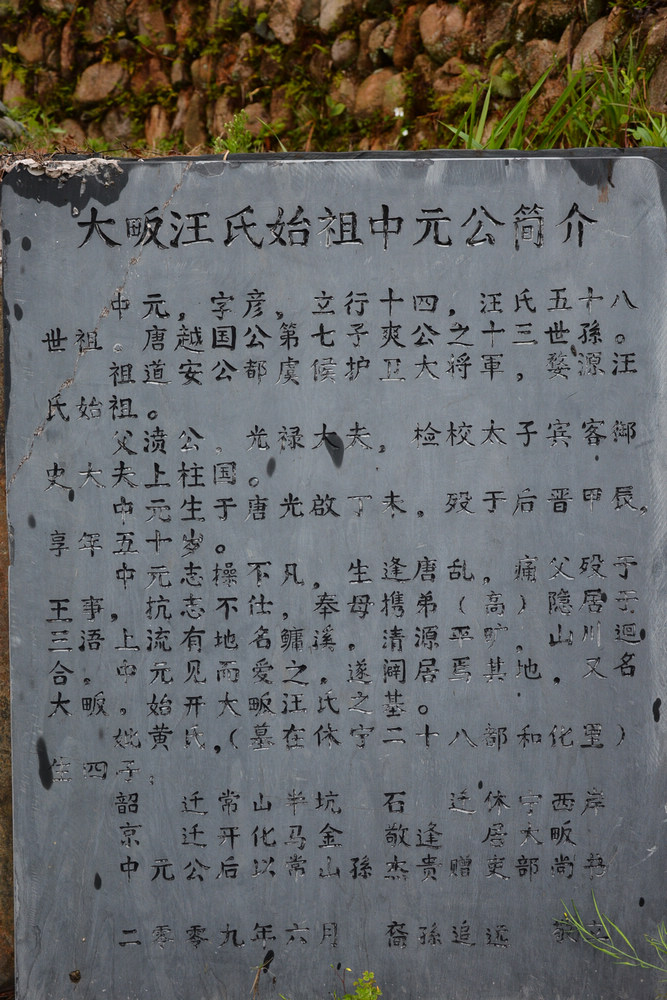 大畈汪氏始祖中元公简介
中元，字彦，立行十四，汪氏五十八
世祖。唐越国公第七子爽公之十三世孫。
祖道安公都虞候护卫大将軍，婺源汪
氏始祖。
父濆公，光禄大夫，检校太子宾客御
史大夫上柱国。
中元生于唐光啟丁未，殁于后晋甲辰，
享年五十岁。
中元志操不凡，生逢唐乱，痛父殁于
王事，抗志不仕，奉母携弟（高）隐居于
三浯，上流有地名鳙溪，清源平旷，山川迴
合。中元见而爱之，遂阔居焉其地，又名
大畈。始开大畈汪氏之基。
妣黄氏，（墓在休宁二十八部和化里）
生四子：
韶 迁常山半坑 石 迁休宁西岸
京 迁开化马金 敬逢居大畈
中元公后以常山孫杰贵赠吏部尚书
二零零九年六月 裔孫追远 立